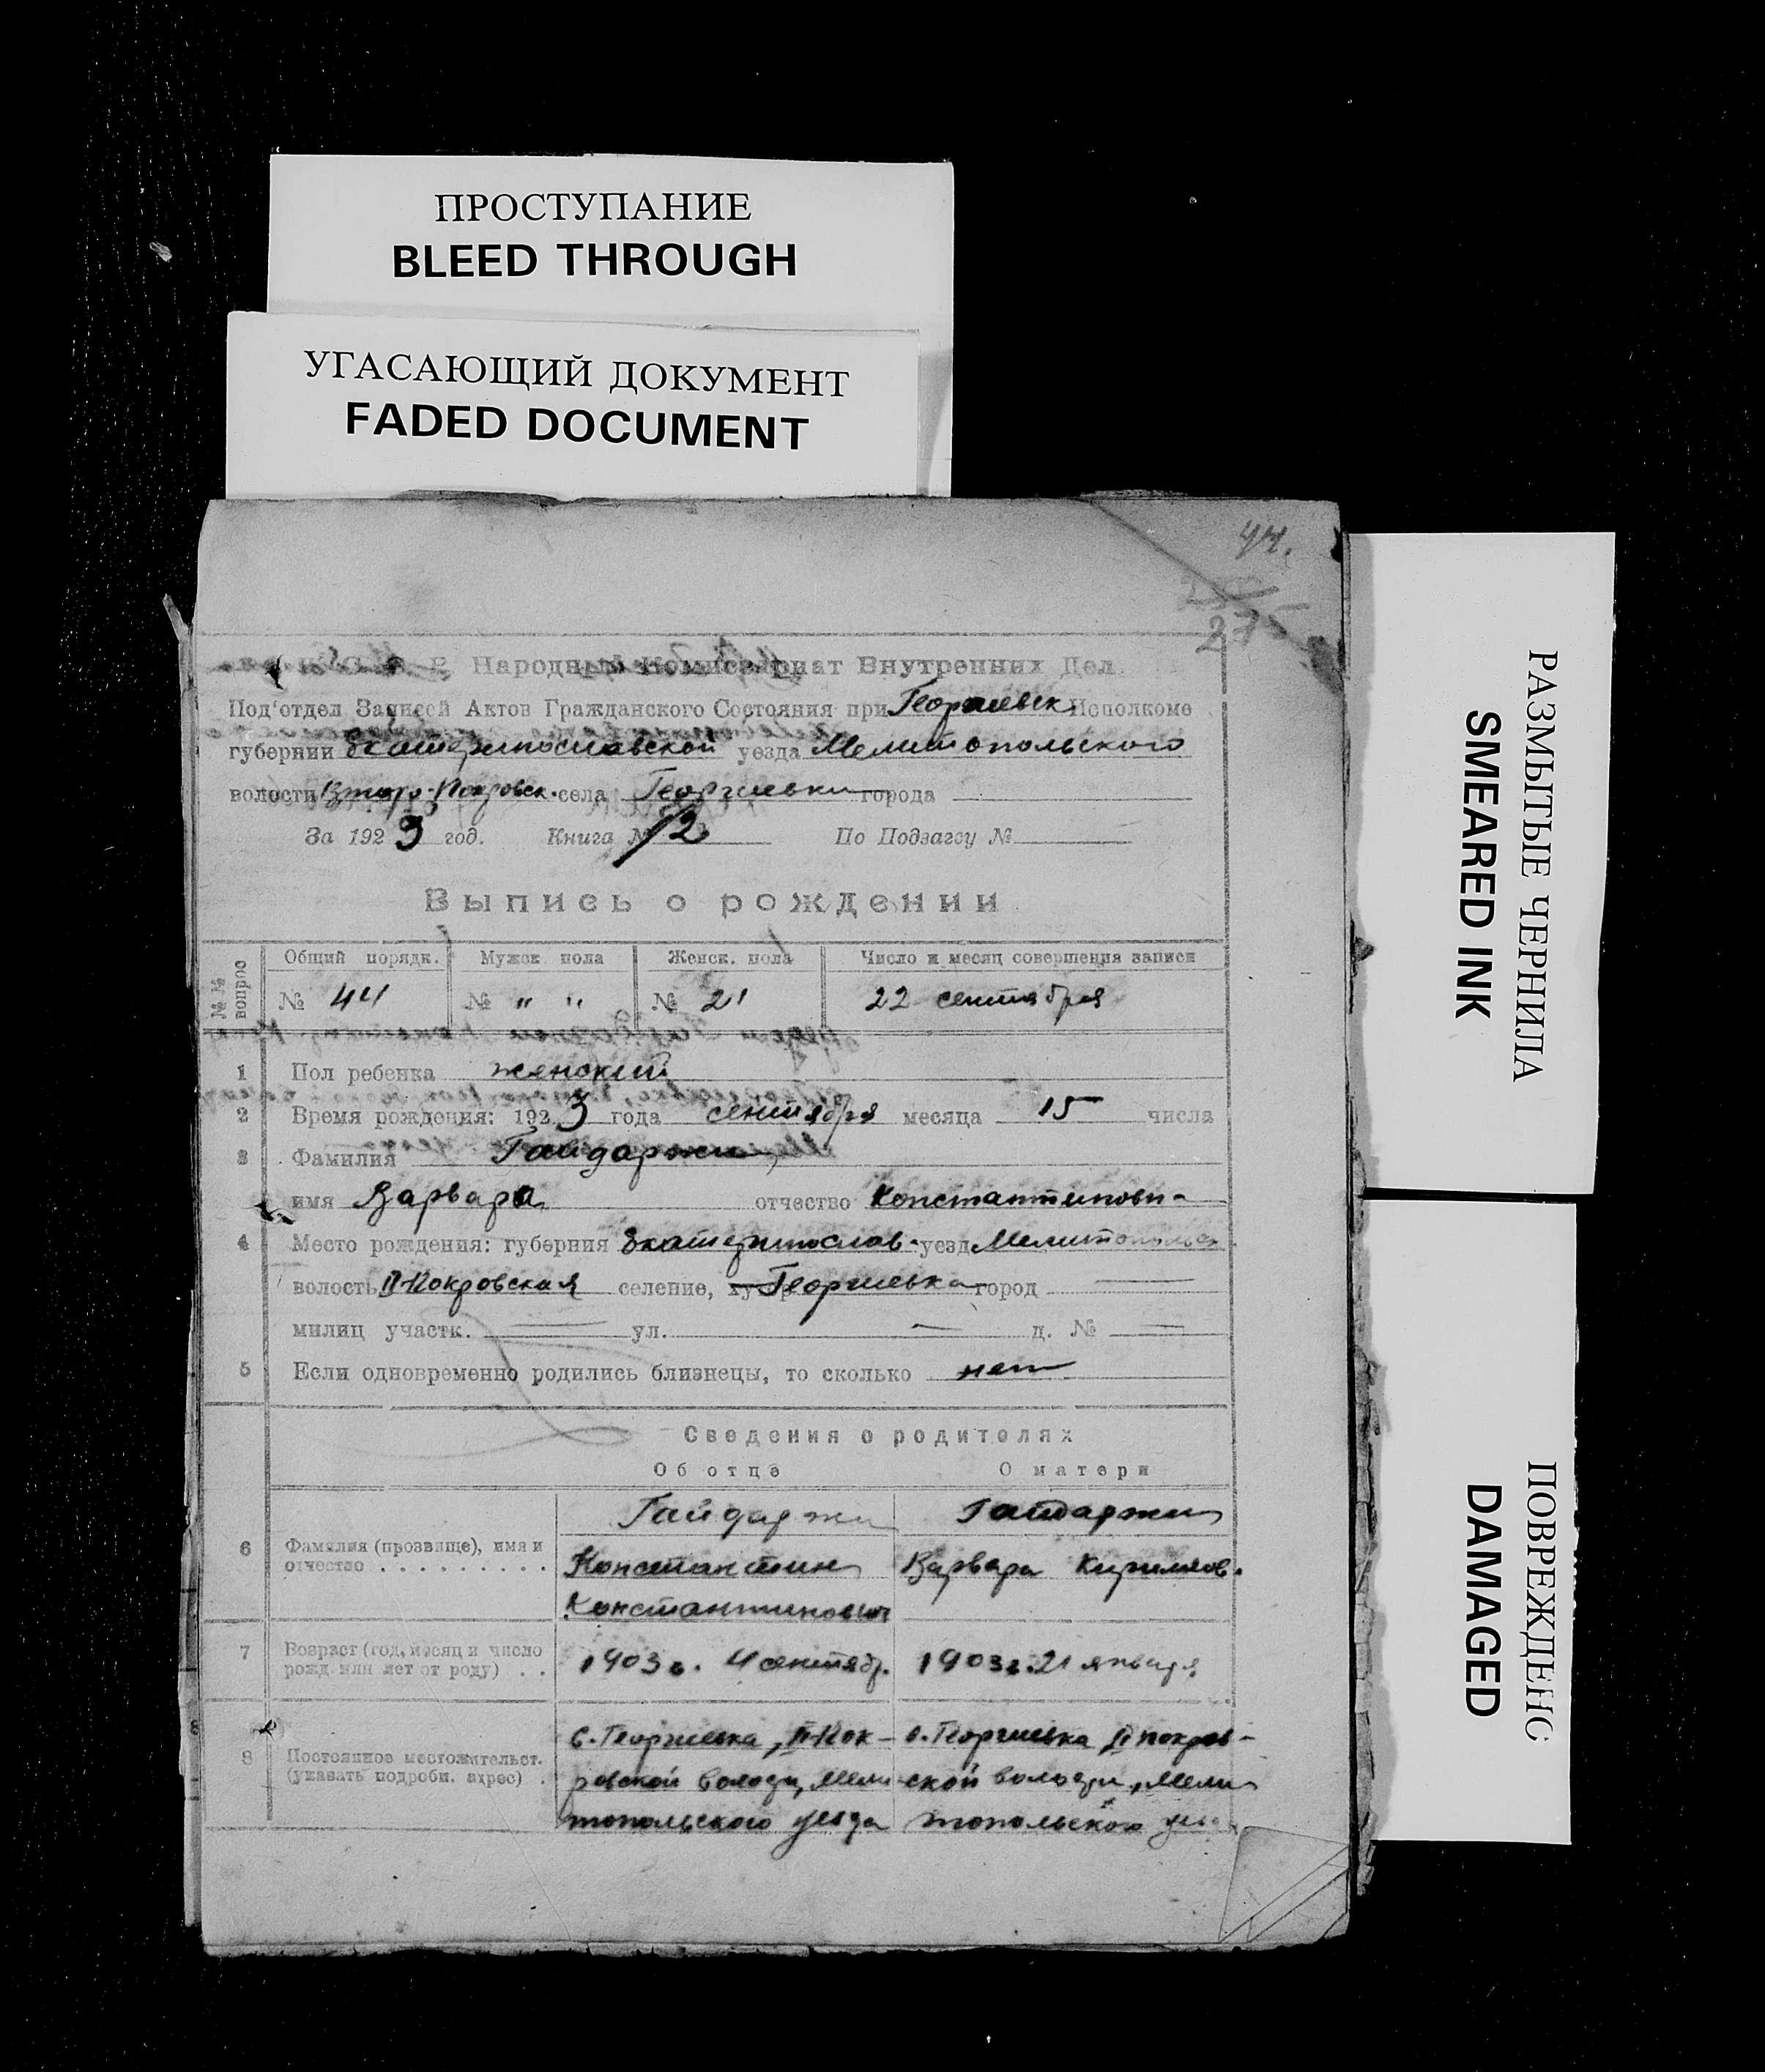 ПРОСТУПАНИЕ
BLEED THROUGH
УГАСАЮЩИЙ ДОКУМЕНТ
FADED DOCUMENT
44.
275
Народный Комиссариат Внутренних Дел
Под'отдел Записей Актов Гражданского Состояния при Георгиевск Исполкоме
губернии Екатеринославской уезда Мелитопольского
волости Второ-Покровск. села Георгиевки города
За 1923 год. Книга № 12 По Подзагсу №
Выпись о рождении
№№ вопрос Общий порядк. Мужск пола Женск. пола Число и месяц совершения записи
№ 44 № " " № 21 22 сентября
1 Пол ребенка женский
2 Время рождения: 1923 года сентября месяца 15 числа
3 Фамилия Гайдаржи
имя Варвара отчество Константинови-
4 Место рождения: губерния Екатеринослав. уезд Мелитопольск
волость II Покровская селение, хутор Георгиевка город
милиц участк. ул. д. №
5 Если одновременно родились близнецы, то сколько нет
Сведения о родителях
Об отце О матери
Гайдаржи Гайдаржи
6 Фамилия (прозвище), имя и отчество Константин Варвара Кириллов.
Константинович
7 Возраст (год, месяц и число рожд или лет от роду) 1903 г. 4 сентябр. 1903 г. 21 января
с. Георгиевка, II Пок- с. Георгиевка II покров-
8 Постоянное местожительст. (указать подробн. адрес) ровской волости, Мели ской волости, Мели
топольского уезда топольского уезда
РАЗМЫТЫЕ ЧЕРНИЛА
SMEARED INK
ПОВРЕЖДЕНС
DAMAGED